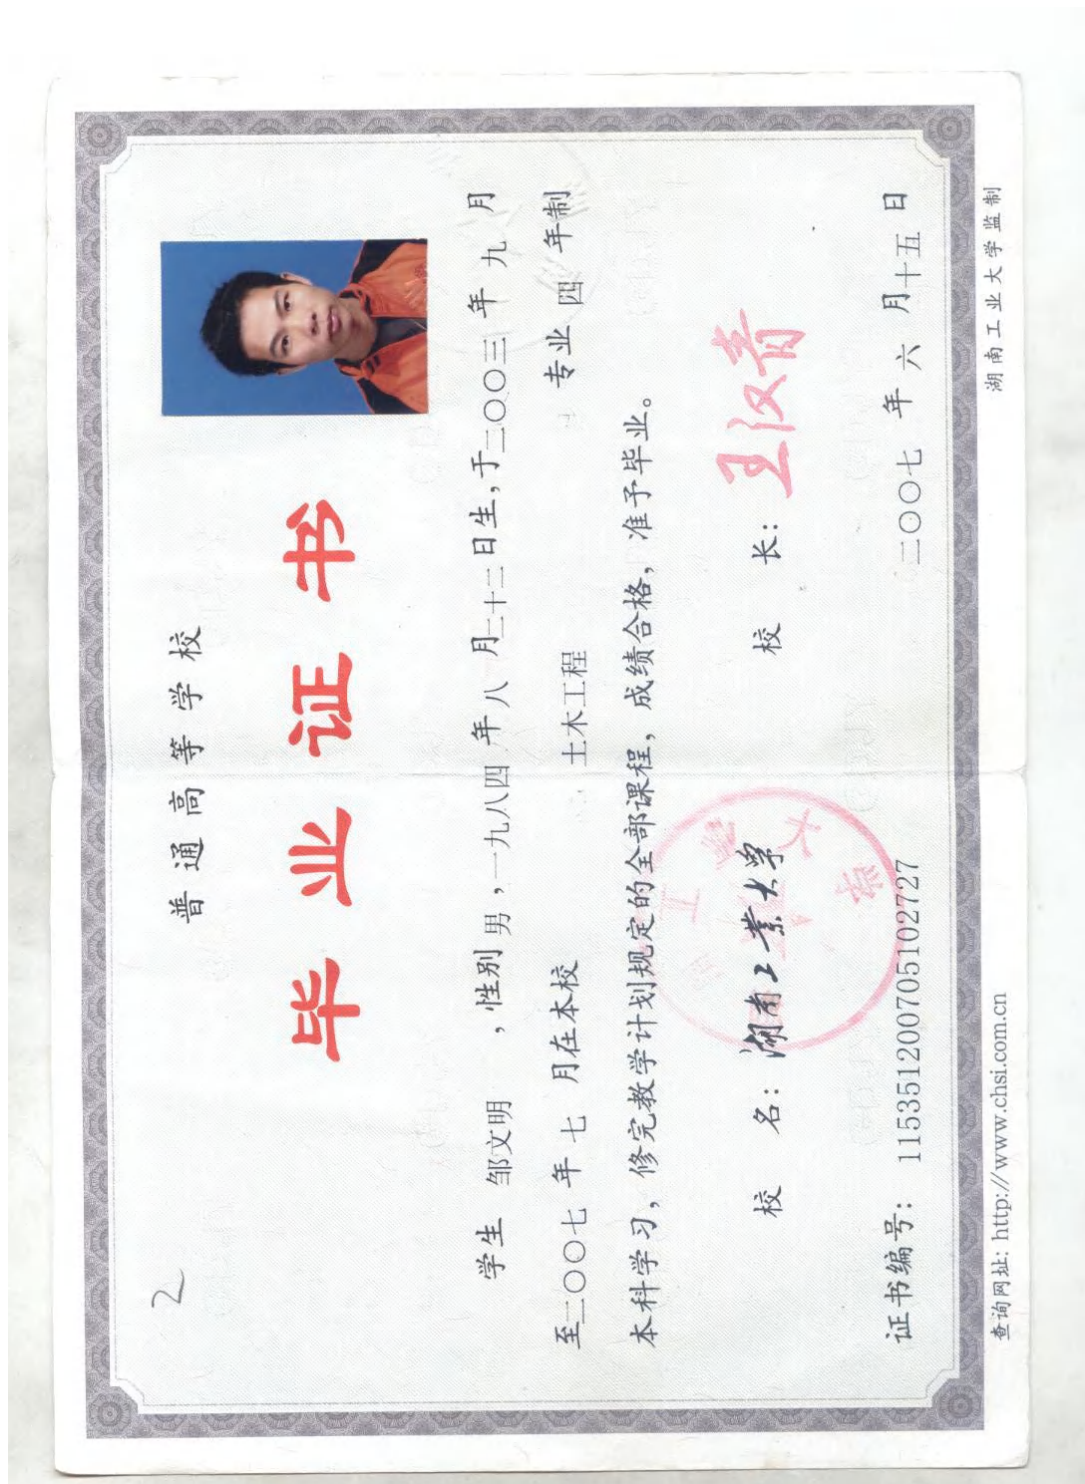 2
普通高等学校
毕业证书
学生 邹文明 ,性别 男 ,一九八四 年 八 月二十三日生,于二〇〇三 年 九 月
至二〇〇七 年 七 月在本校 土木工程 专业 四 年制
本科学习，修完教学计划规定的全部课程，成绩合格，准予毕业。
校 名: 湖南工业大学 校 长: 王汉青
证书编号: 115351200705102727 二〇〇七 年 六 月十五日
查询网址: http://www.chsi.com.cn 湖南工业大学监制